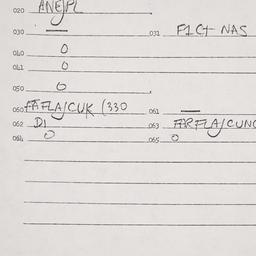 020 ANE/PL
030 — 031 F1C+ NAS
040 0
041 0
050 0
060 FA FLA/CUK (330 061 —
062 D1 063 FAR FLA/CUNC
064 0 065 0